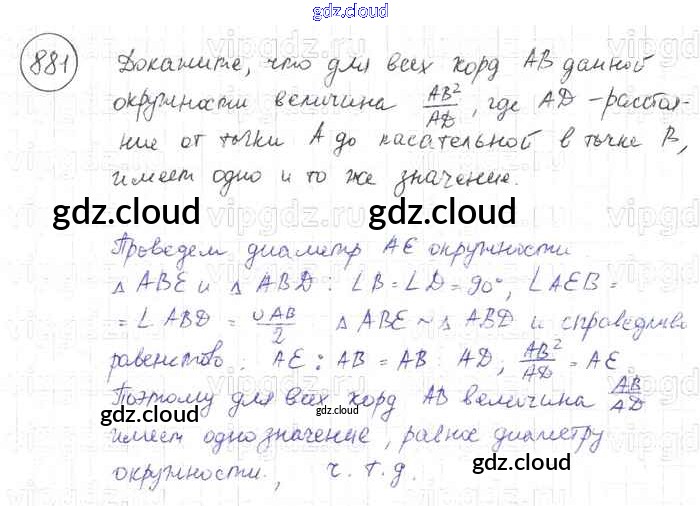 gdz.cloud
881 Докажите, что для всех хорд AB данной
окружности величина AB²/AD, где AD - расстоя-
ние от точки A до касательной в точке B,
имеет одно и то же значение.
gdz.cloud gdz.cloud
Проведем диаметр AE окружности
△ ABE и △ ABD : ∠B = ∠D = 90°, ∠AEB =
= ∠ABD = ∪AB/2 △ ABE ~ △ ABD и справедливо
равенство: AE : AB = AB : AD, AB²/AD = AE
Поэтому для всех хорд AB величина AB/AD
gdz.cloud gdz.cloud gdz.cloud
имеет одно значение, равное диаметру
окружности., ч. т. д.
gdz.cloud